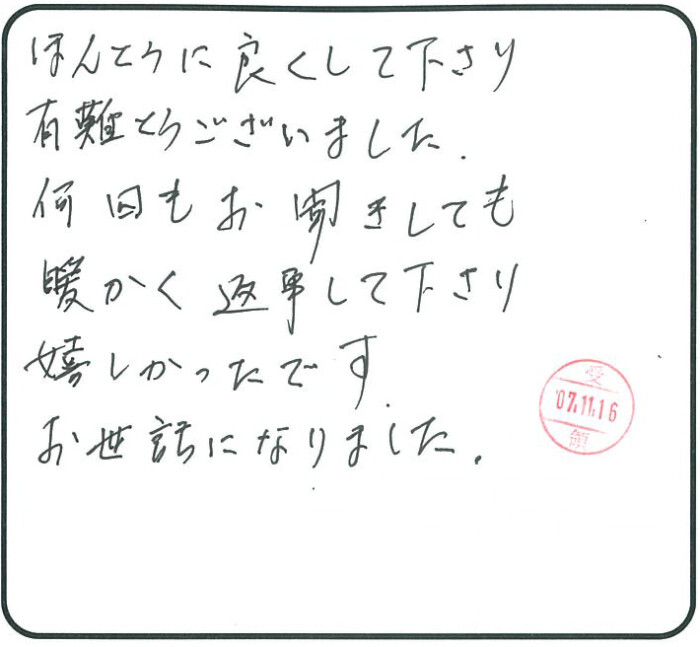 ほんとうに良くして下さり
有難とうございました.
何回もお聞きしても
暖かく返事して下さり
嬉しかったです.
お世話になりました.
受
'07.11.16
領